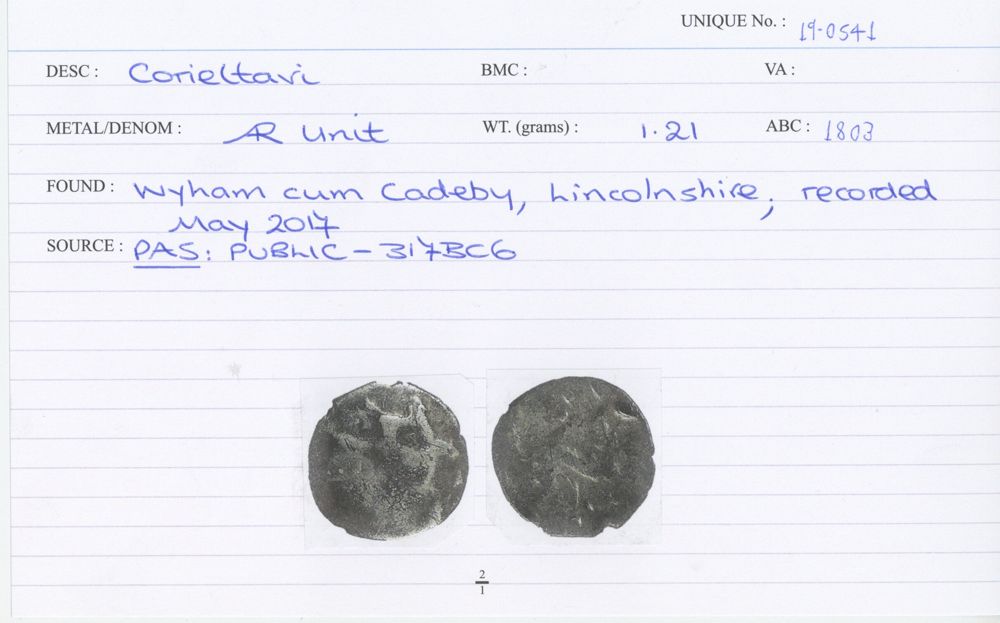 UNIQUE No. : 19-0541
DESC : Corieltavi BMC : VA :
METAL/DENOM : AR Unit WT. (grams) : 1.21 ABC : 1803
FOUND : Wyham cum Cadeby, Lincolnshire, recorded
May 2017
SOURCE : PAS: PUBLIC-317BC6
2
1